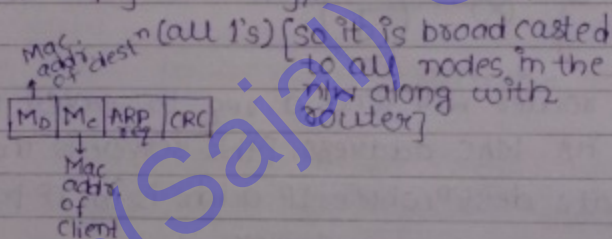 Mac addr of destⁿ (all 1's) [so it is broad casted
to all nodes in the
n/w along with
router]
M_D | M_C | ARP req | CRC
Mac
addr.
of
Client
(Sajal)